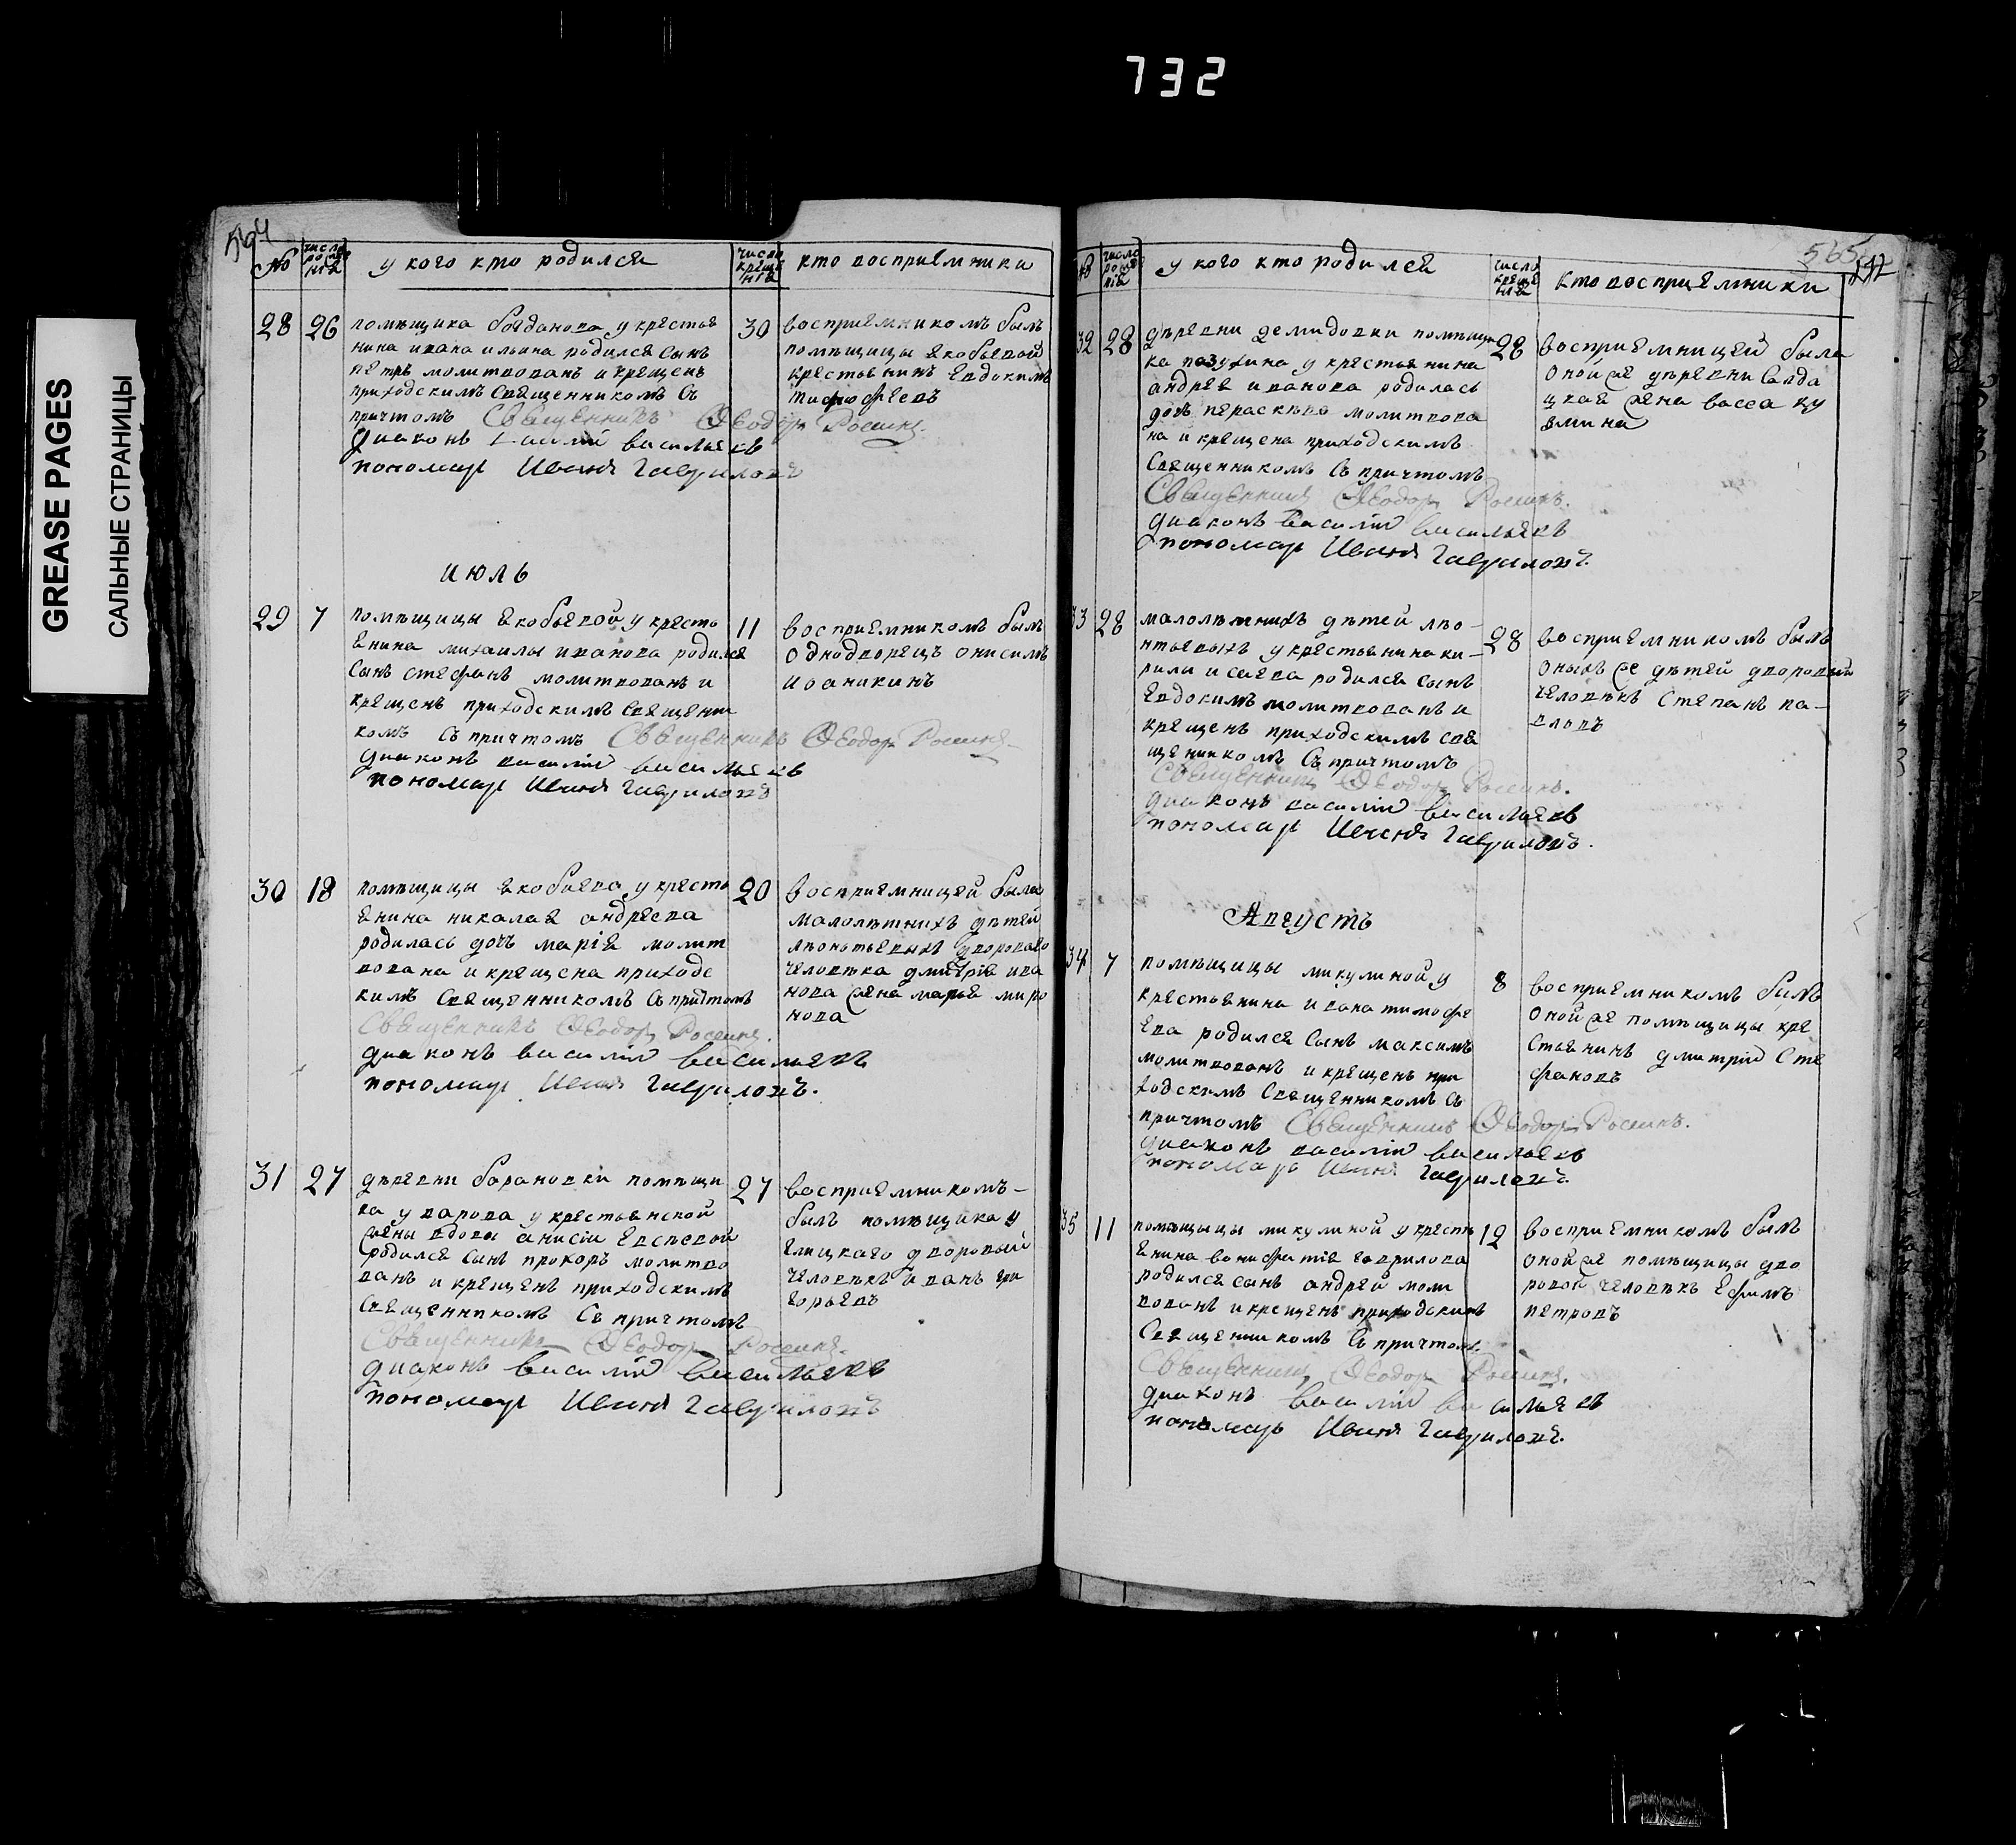 732
GREASE PAGES
САЛЬНЫЕ СТРАНИЦЫ
564
№
число рожденія
у кого кто родился
число крещенія
кто восприемники
28 26
помѣщика богданова у крестья
нина ивана ильина родился сынъ
петръ молитвованъ и крещенъ
приходскимъ священникомъ съ
причтомъ Священникъ Ѳеодоръ Росинъ.
диаконъ василій васильевъ
пономарь Иванъ Гавриловъ
30
восприемникомъ былъ
помѣщицы якобьевой
крестьянинъ евдокимъ
тимофѣевъ
июль
29 7
помѣщицы якобьевой у кресть
янина михаилы иванова родился
сынъ стефанъ молитвованъ и
крещенъ приходскимъ священни
комъ съ причтомъ Священникъ Ѳеодоръ Росинъ
диаконъ василій васильевъ
пономарь Иванъ Гавриловъ
11
восприемникомъ былъ
однодворецъ онисимъ
иоаникинъ
30 18
помѣщицы якобьева у кресть
янина николая андреева
родилась дочь марія молит
вована и крещена приходс
кимъ священникомъ съ причтомъ
Священникъ Ѳеодоръ Росинъ.
диаконъ василій васильевъ
пономарь Иванъ Гавриловъ.
20
восприемницей была
малолѣтнихъ дѣтей
лѣонтьевыхъ двороваго
человѣка дмитрія ива
нова жена марья миро
нова
31 27
дѣревни барановки помѣщи
ка уварова у крестьянской
жены вдовы анисіи евсѣевой
родился сынъ прохоръ молитво
ванъ и крещенъ приходскимъ
священникомъ съ причтомъ
Священникъ Ѳеодоръ Росинъ.
диаконъ василій васильевъ
пономарь Иванъ Гавриловъ
27
восприемникомъ
былъ помѣщика у
елицкаго дворовый
человѣкъ иванъ гри
горьевъ
565
№
число рожденія
у кого кто родился
число крещенія
кто восприемники
32 28
дѣревни демидовки помѣщи
ка пазухина у крестьянина
андрея иванова родилась
дочь параскѣва молитвова
на и крещена приходскимъ
священникомъ съ причтомъ
Священникъ Ѳеодоръ Росинъ.
диаконъ василій васильевъ
пономарь Иванъ Гавриловъ.
28
восприемницей была
оной же дѣревни салда
цкая жена васса ку
змина
33 28
малолѣтнихъ дѣтей лѣо-
нтьевыхъ у крестьянина ки-
рилы исаева родился сынъ
евдокимъ молитвованъ и
крещенъ приходскимъ свя
щенникомъ съ причтомъ
Священникъ Ѳеодоръ Росинъ.
диаконъ василій васильевъ
пономарь Иванъ Гавриловъ.
28
восприемникомъ былъ
оныхъ же дѣтей дворовый
человѣкъ степанъ па-
вловъ
Августъ
34 7
помѣщицы микулиной у
крестьянина ивана тимофе
ева родился сынъ максимъ
молитвованъ и крещенъ при
ходскимъ священникомъ съ
причтомъ Священникъ Ѳеодоръ Росинъ.
диаконъ василій васильевъ
пономарь Иванъ Гавриловъ.
8
восприемникомъ былъ
оной же помѣщицы кре
стьянинъ дмитрій сте
фановъ
35 11
помѣщицы микулиной у кресть
янина вонифатія гаврилова
родился сынъ андрей моли
вованъ и крещенъ приходскимъ
священникомъ съ причтом.
Священникъ Ѳеодоръ Росинъ.
диаконъ василій васильевъ
пономарь Иванъ Гавриловъ.
12
восприемникомъ былъ
оной же помѣщицы дво
ровой человѣкъ ефимъ
петровъ